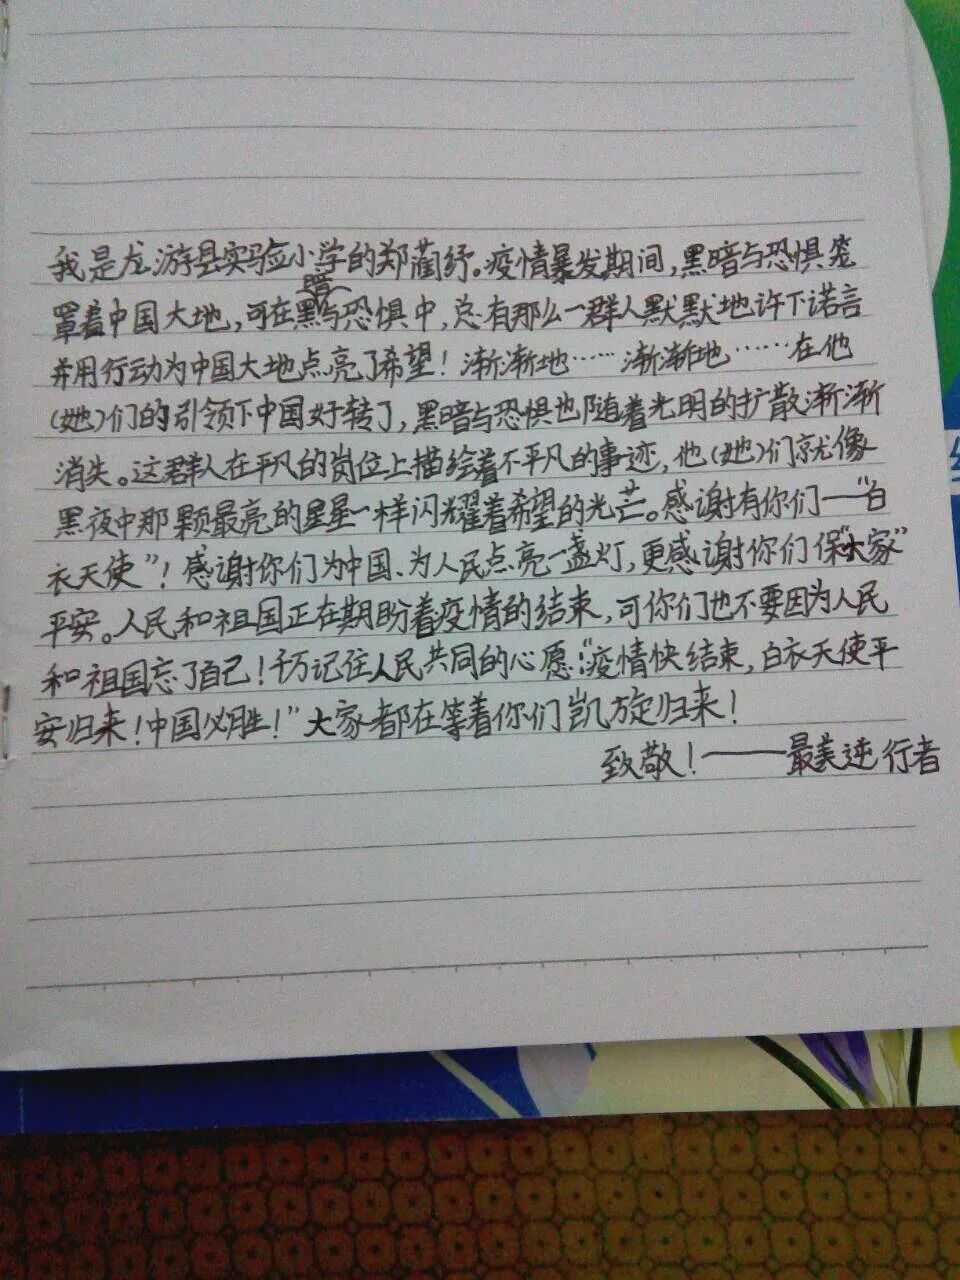 我是龙游县实验小学的郑蔺纾。疫情暴发期间，黑暗与恐惧笼
罩着中国大地，可在黑暗与恐惧中，总有那么一群人默默地许下诺言
并用行动为中国大地点亮了希望！渐渐地……渐渐地……在他
(她)们的引领下中国好转了，黑暗与恐惧也随着光明的扩散渐渐
消失。这群人在平凡的岗位上描绘着不平凡的事迹，他(她)们就像
黑夜中那颗最亮的星星一样闪耀着希望的光芒。感谢有你们—“白
衣天使”！感谢你们为中国、为人民点亮一盏灯，更感谢你们保“大家”
平安。人民和祖国正在期盼着疫情的结束，可你们也不要因为人民
和祖国忘了自己！千万记住人民共同的心愿：“疫情快结束，白衣天使平
安归来！中国必胜！”大家都在等着你们凯旋归来！
致敬！——最美逆行者